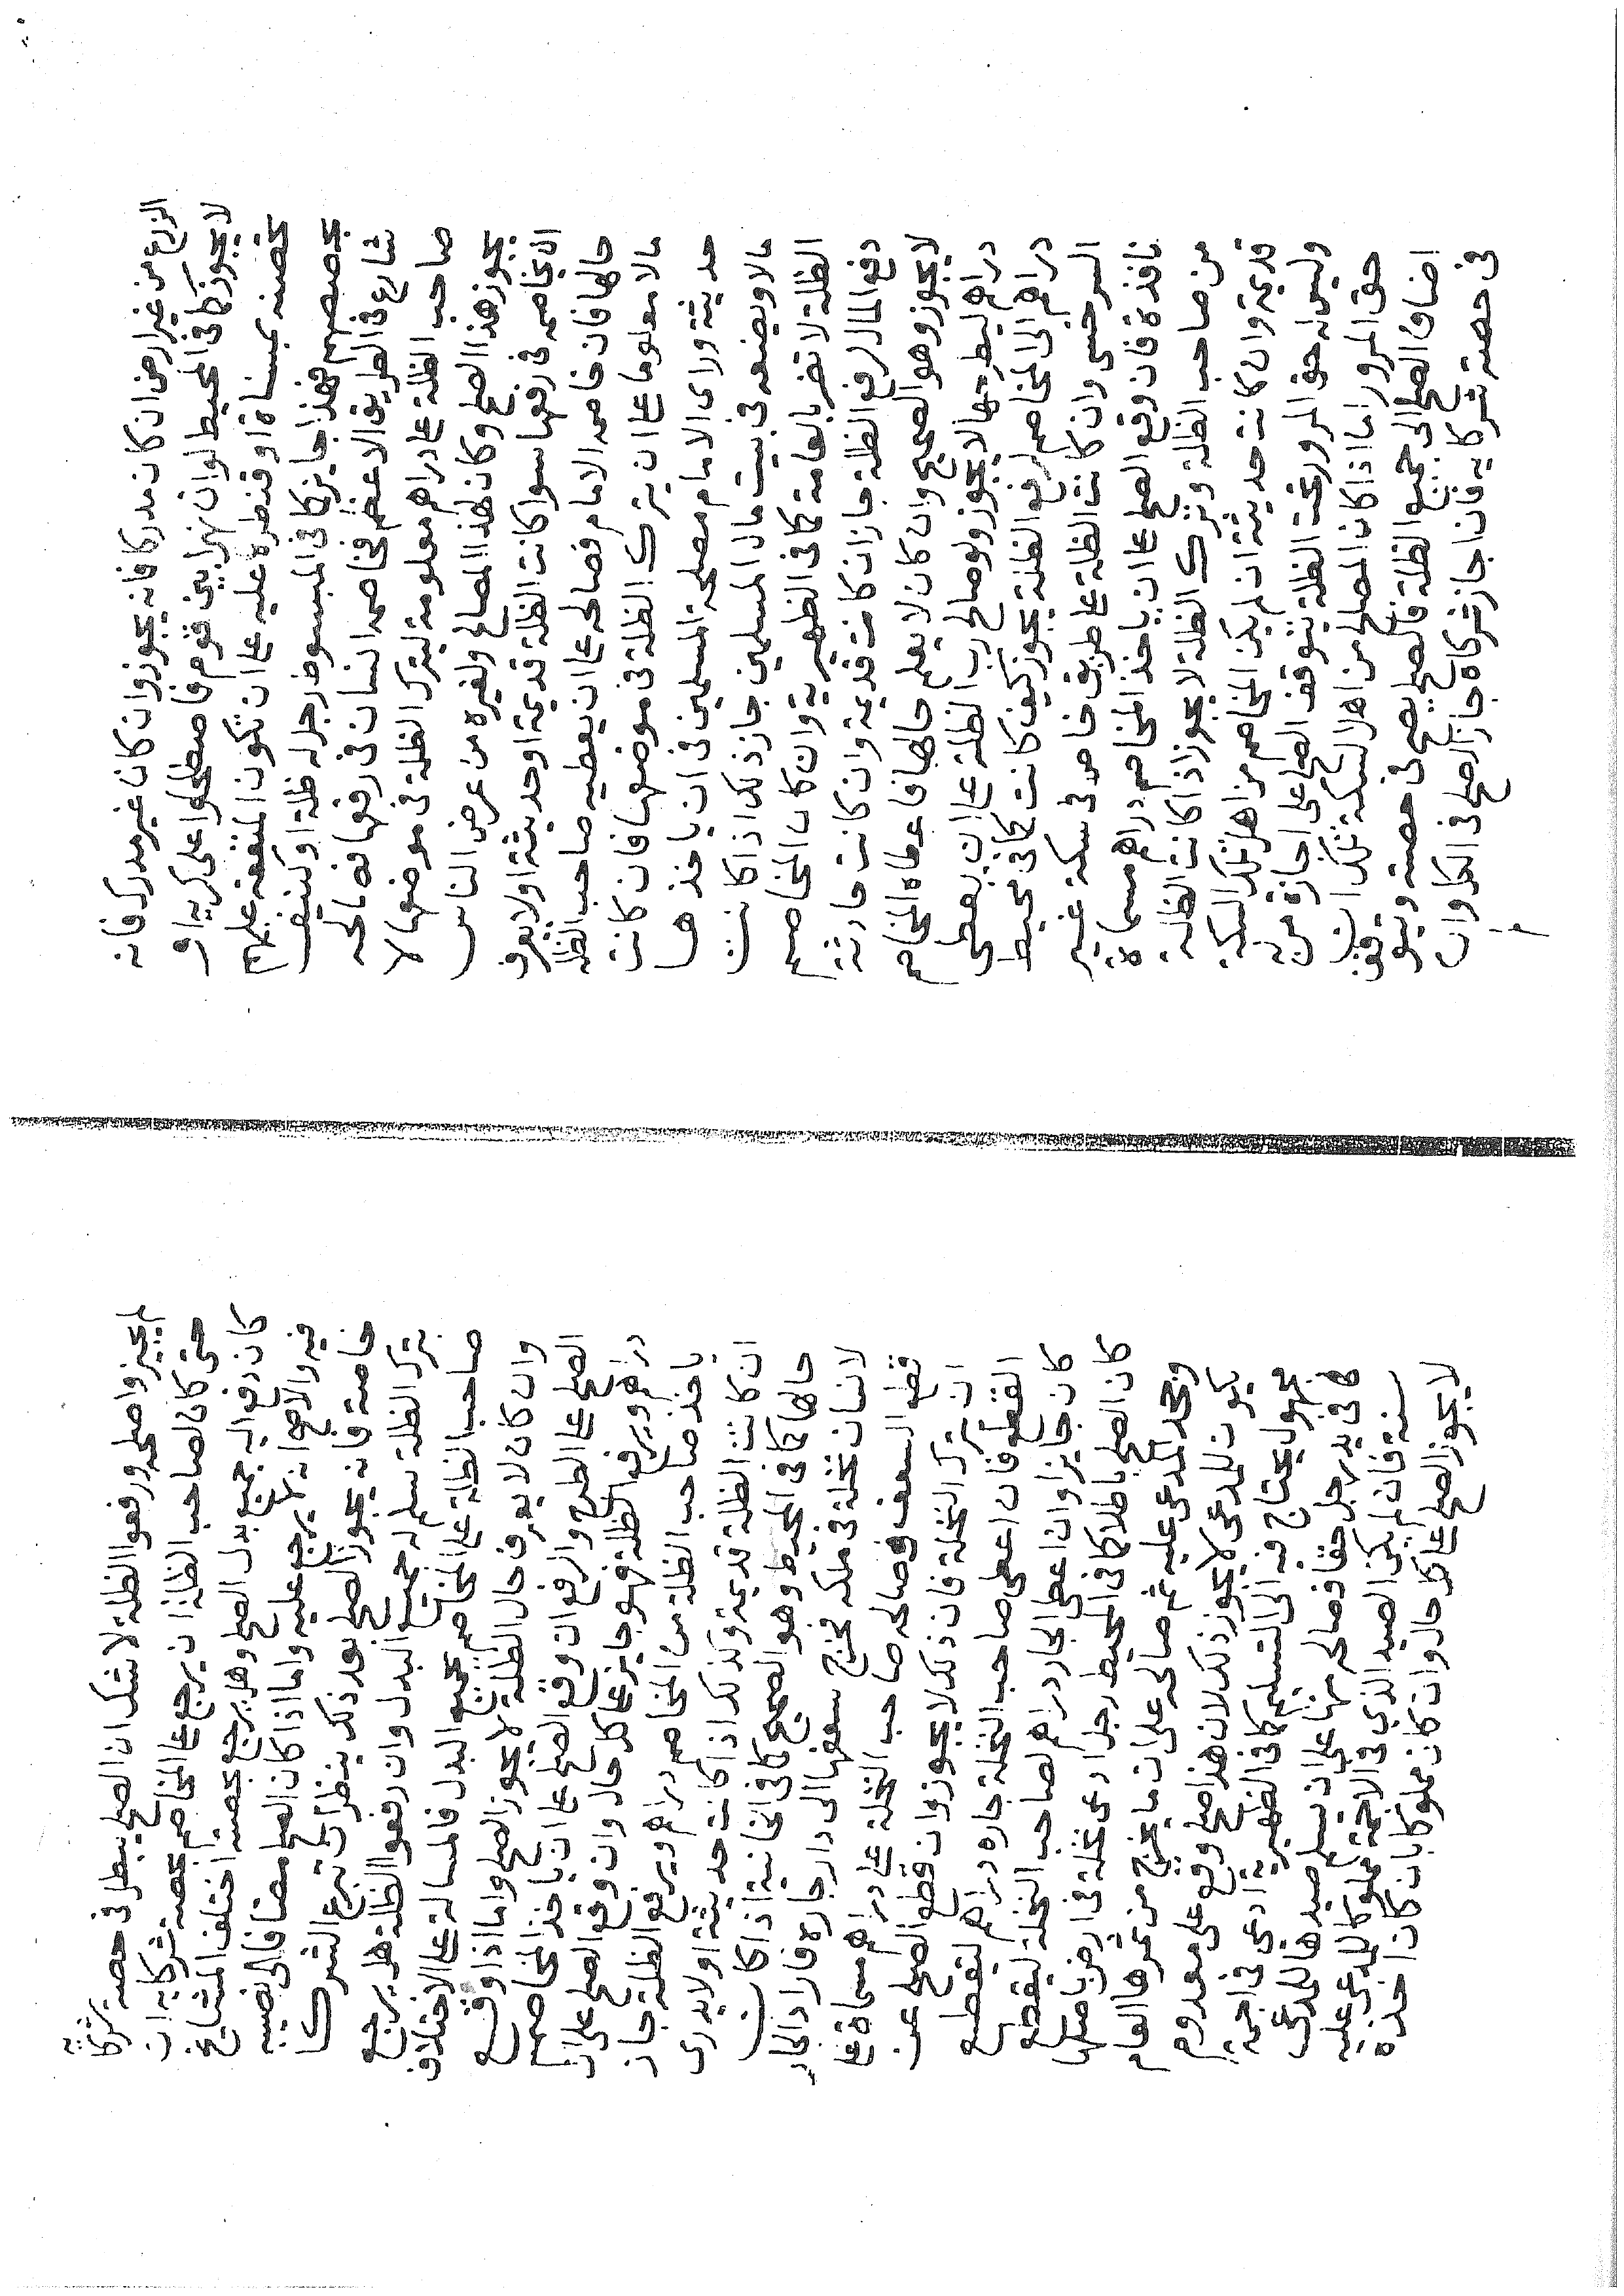 الزرع من غير ارض ان كان مدركا فانه يجوز وان كان غير مدرك فانه
لا يجوز كما في المحيط لو ان نهرا بين قوم فاصطلحوا على كريه او
تحصينه بمسناة او قنطرة عليه على ان تكون النفقة عليهم
بحصصهم فهذا جايز كما في المبسوط رجل له ظلة او كنيف
شارع في الطريق الاعظم فخاصمه انسان في رفعها فصالحه
صاحب الظلة على دراهم معلومة ليترك الظلة في موضعها لا
يجوز هذا الصلح وكان لهذا المصالح ولغيره من عرض الناس
ان يخاصمه في رفعها سوا كانت الظلة قديمة او حديثة او لا يعرف
حالها فان خاصمه الامام فصالحه على ان يعطيه صاحب الظلة
مالا معلوما على ان يترك الظلة في موضعها فان كانت
حديثة وراى الامام مصلحة المسلمين في ان ياخذ ها
مالا ويضعه في بيت مال المسلمين جاز ذلك اذا كانت
الظلة لا تضر بالعامة كما في الظهيرية وان كان المخاصم
دفع المال لرفع الظلة جاز ان كانت قديمة وان كانت حادثة
لا يجوز وهو الصحيح وان كان لا يعلم حالها فاعطاه المخاصم
دراهم ليطرحها لا يجوز ولو صالح رب الظلة على ان يعطى
دراهم الى المخاصم لرفع الظلة يجوز كيف كانت كما في محيط
السرخسى وان كانت الظلة على طريق خاص في سكة غير
نافذة فان وقع الصلح على ان ياخذ المخاصم دراهم مسماة
من صاحب الظلة ويترك الظلة لا يجوز اذا كانت الظلة
قديمة وان كانت حديثة ان لم يكن المخاصم من اهل تلك السكة
وليس له حق المرور تحت الظلة يتوقف الصلح على اجازة من له
حق المرور اما اذا كان المصالح من اهل السكة تلك ان
اضاف الصلح الى جميع الظلة فالصلح يصح في حصته ويتوقف
في حصة شركايه فان اجاز شركاه جاز الصلح في الكل وان
لم
يجيزوا صلحه ورفعوا الظلة لا شك ان الصلح يبطل في حصة شركايه
حتى كان لصاحب الظلة ان يرجع على المخاصم بحصة شركايه ان
كان دفع اليه جميع بدل الصلح وهل يرجع بحصته اختلف المشايخ
فيه والاصح انه يرجع عليه واما اذا كان الصلح مضافا الى نصيبه
خاصة فانه يجوز الصلح بعد ذلك ينظر ان تبرع الشركا
بترك الظلة سلم له جميع البدل وان رفعوا الظلة هل يرجع
صاحب الظلة على المخاصم بجميع البدل فالمسالة على الاختلاف
وان كان لا يعرف حال الظلة لا يجوز الصلح واما اذا وقع
الصلح على الطرح والرفع ان وقع الصلح على ان ياخذ المخاصم
دراهم ويرفع الظلة فهو جايز على كل حال وان وقع الصلح على ان
ياخذ صاحب الظلة من المخاصم دراهم ويرفع الظلة جاز
ان كانت الظلة قديمة وكذلك اذا كانت حديثة او لا يدرى
حالها كما في المحيط وهو الصحيح كما في الخانية اذا كان
لانسان نخلة في ملكه فخرج سعفها الى دار جاره فاراد الجار
قطع السعف فصالحه صاحب النخلة على دراهم مسماة على
ان يترك النخلة فان ذلك لا يجوز وان وقع الصلح عن
القطع فان اعطى صاحب النخلة جاره دراهم ليقطع
كان جايزا وان اعطى الجار دراهم لصاحب النخلة ليقطع
كان الصلح باطلا كما في المحيط رجل ادعى نخلة في ارض باصلها
وجحد المدعى عليه ثم صالحه على ان ما يخرج من ثمرها العام
يكون للمدعى لا يجوز ذلك لان هذا صلح وقع على معدوم
مجهول يحتاج فيه الى التسليم كما في الظهيرية ادعى في اجمة
هي في يد رجل حقا فصالحه منها على ان يسلم صيدها للمدعى
سنة فان لم يكن الصيد الذي في الاجمة مملوكا للمدعى عليه
لا يجوز الصلح على كل حال وان كان مملوكا بان كان اخذه